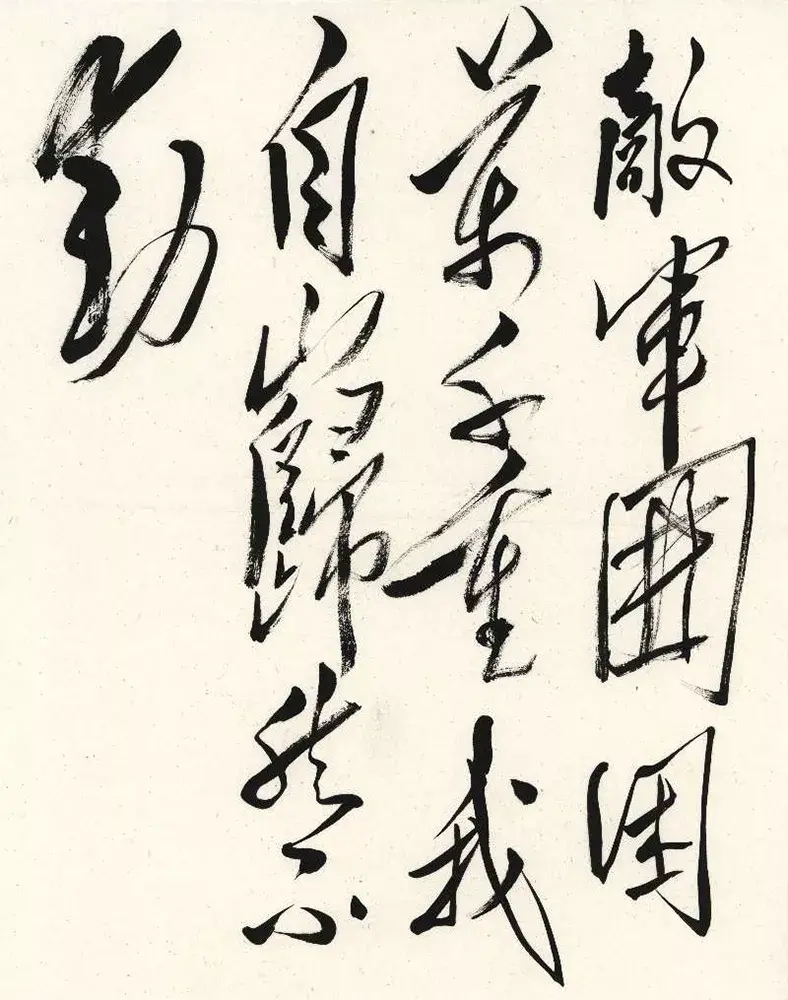 敵軍圍困
萬千重我
自巋然不
動